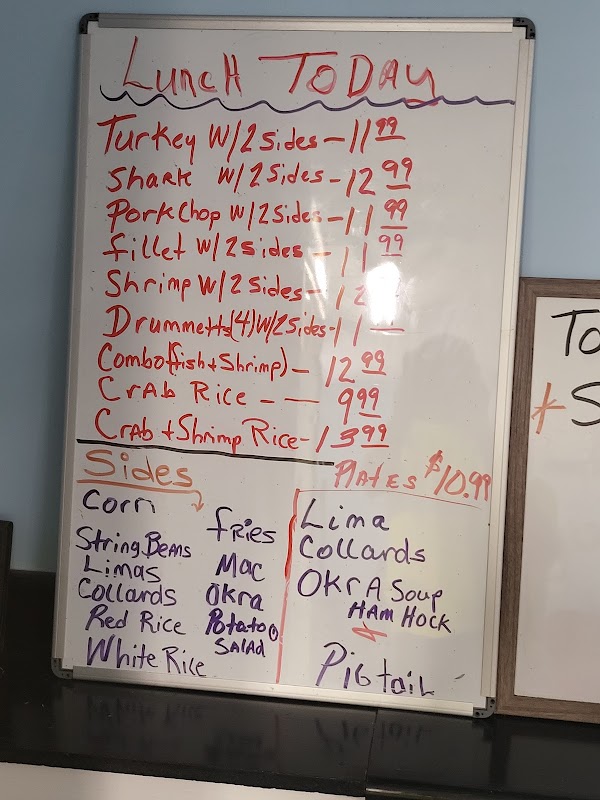 Lunch Today
Turkey w/2 Sides - 11 99
Shark w/2 Sides - 12 99
Pork Chop w/2 Sides - 11 99
fillet w/2 sides - 11 99
Shrimp w/2 Sides - 12
Drummetts (4) w/2 Sides - 11
Combo (fish + Shrimp) - 12 99
Crab Rice - — 9 99
Crab + Shrimp Rice - 13 99
Plates $10.99
Sides
Corn
String Beans
Limas
Collards
Red Rice
White Rice
fries
Mac
Okra
Potato
Salad
Lima
Collards
Okra Soup
Ham Hock
Pigtail
To
S